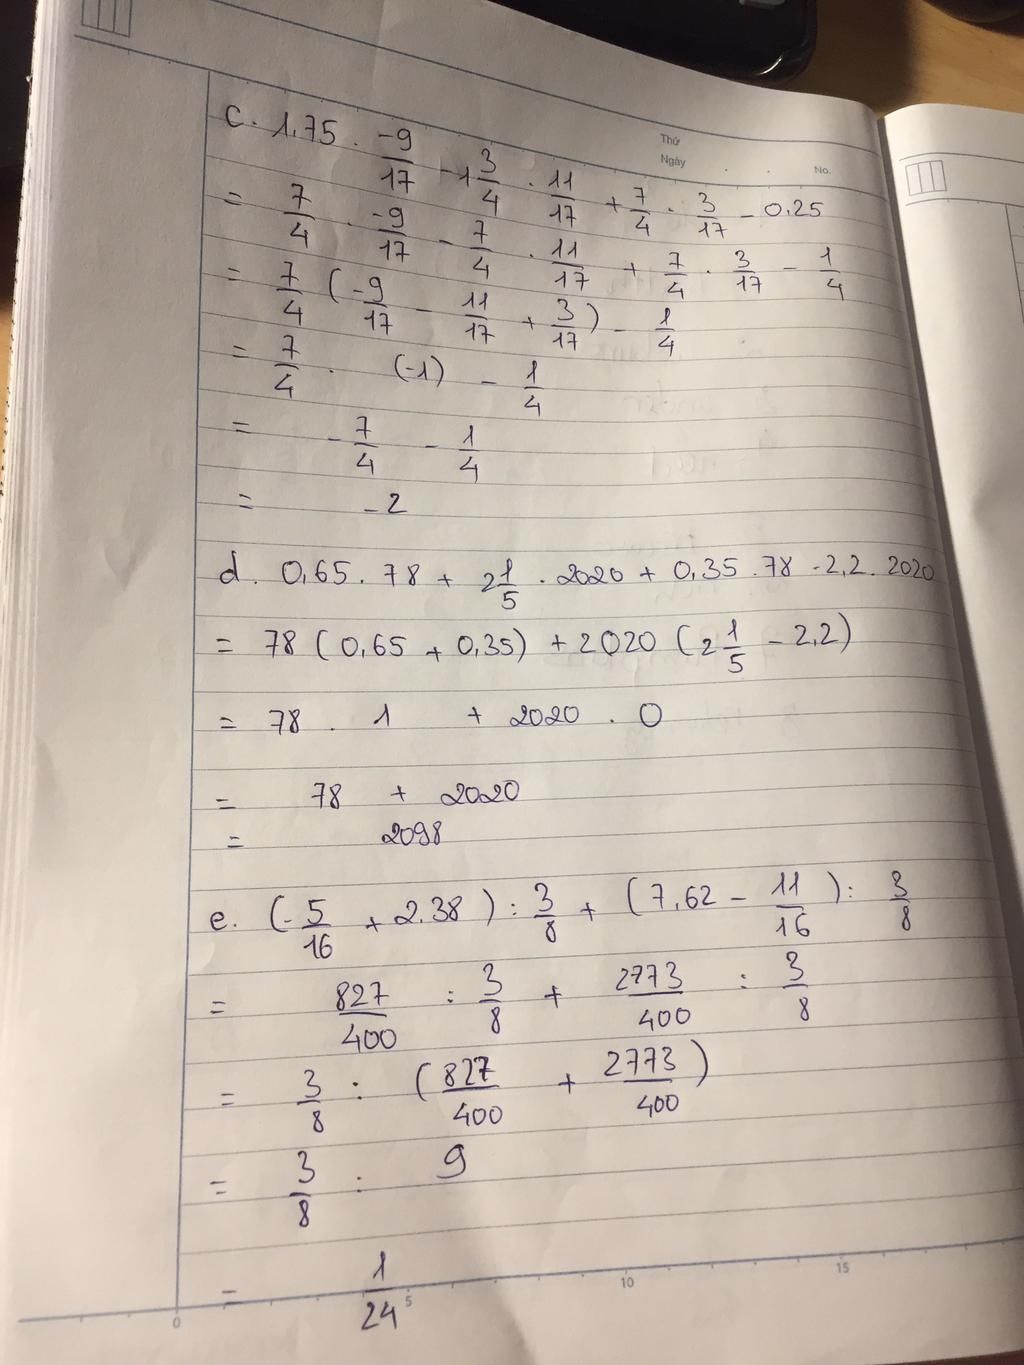 Thứ
Ngày . . No.
c. 1,75 . -9/17 - 1 3/4 . 11/17 + 7/4 . 3/17 - 0.25
= 7/4 . -9/17 - 7/4 . 11/17 + 7/4 . 3/17 - 1/4
= 7/4 (-9/17 - 11/17 + 3/17) - 1/4
= 7/4 . (-1) - 1/4
= -7/4 - 1/4
= -2
d. 0,65 . 78 + 2 1/5 . 2020 + 0,35 . 78 - 2,2 . 2020
= 78 (0,65 + 0,35) + 2020 (2 1/5 - 2,2)
= 78 . 1 + 2020 . 0
= 78 + 2020
= 2098
e. (-5/16 + 2.38) : 3/8 + (7,62 - 11/16) : 3/8
= 827/400 : 3/8 + 2773/400 : 3/8
= 3/8 : (827/400 + 2773/400)
= 3/8 : 9
= 1/24
0 5 10 15